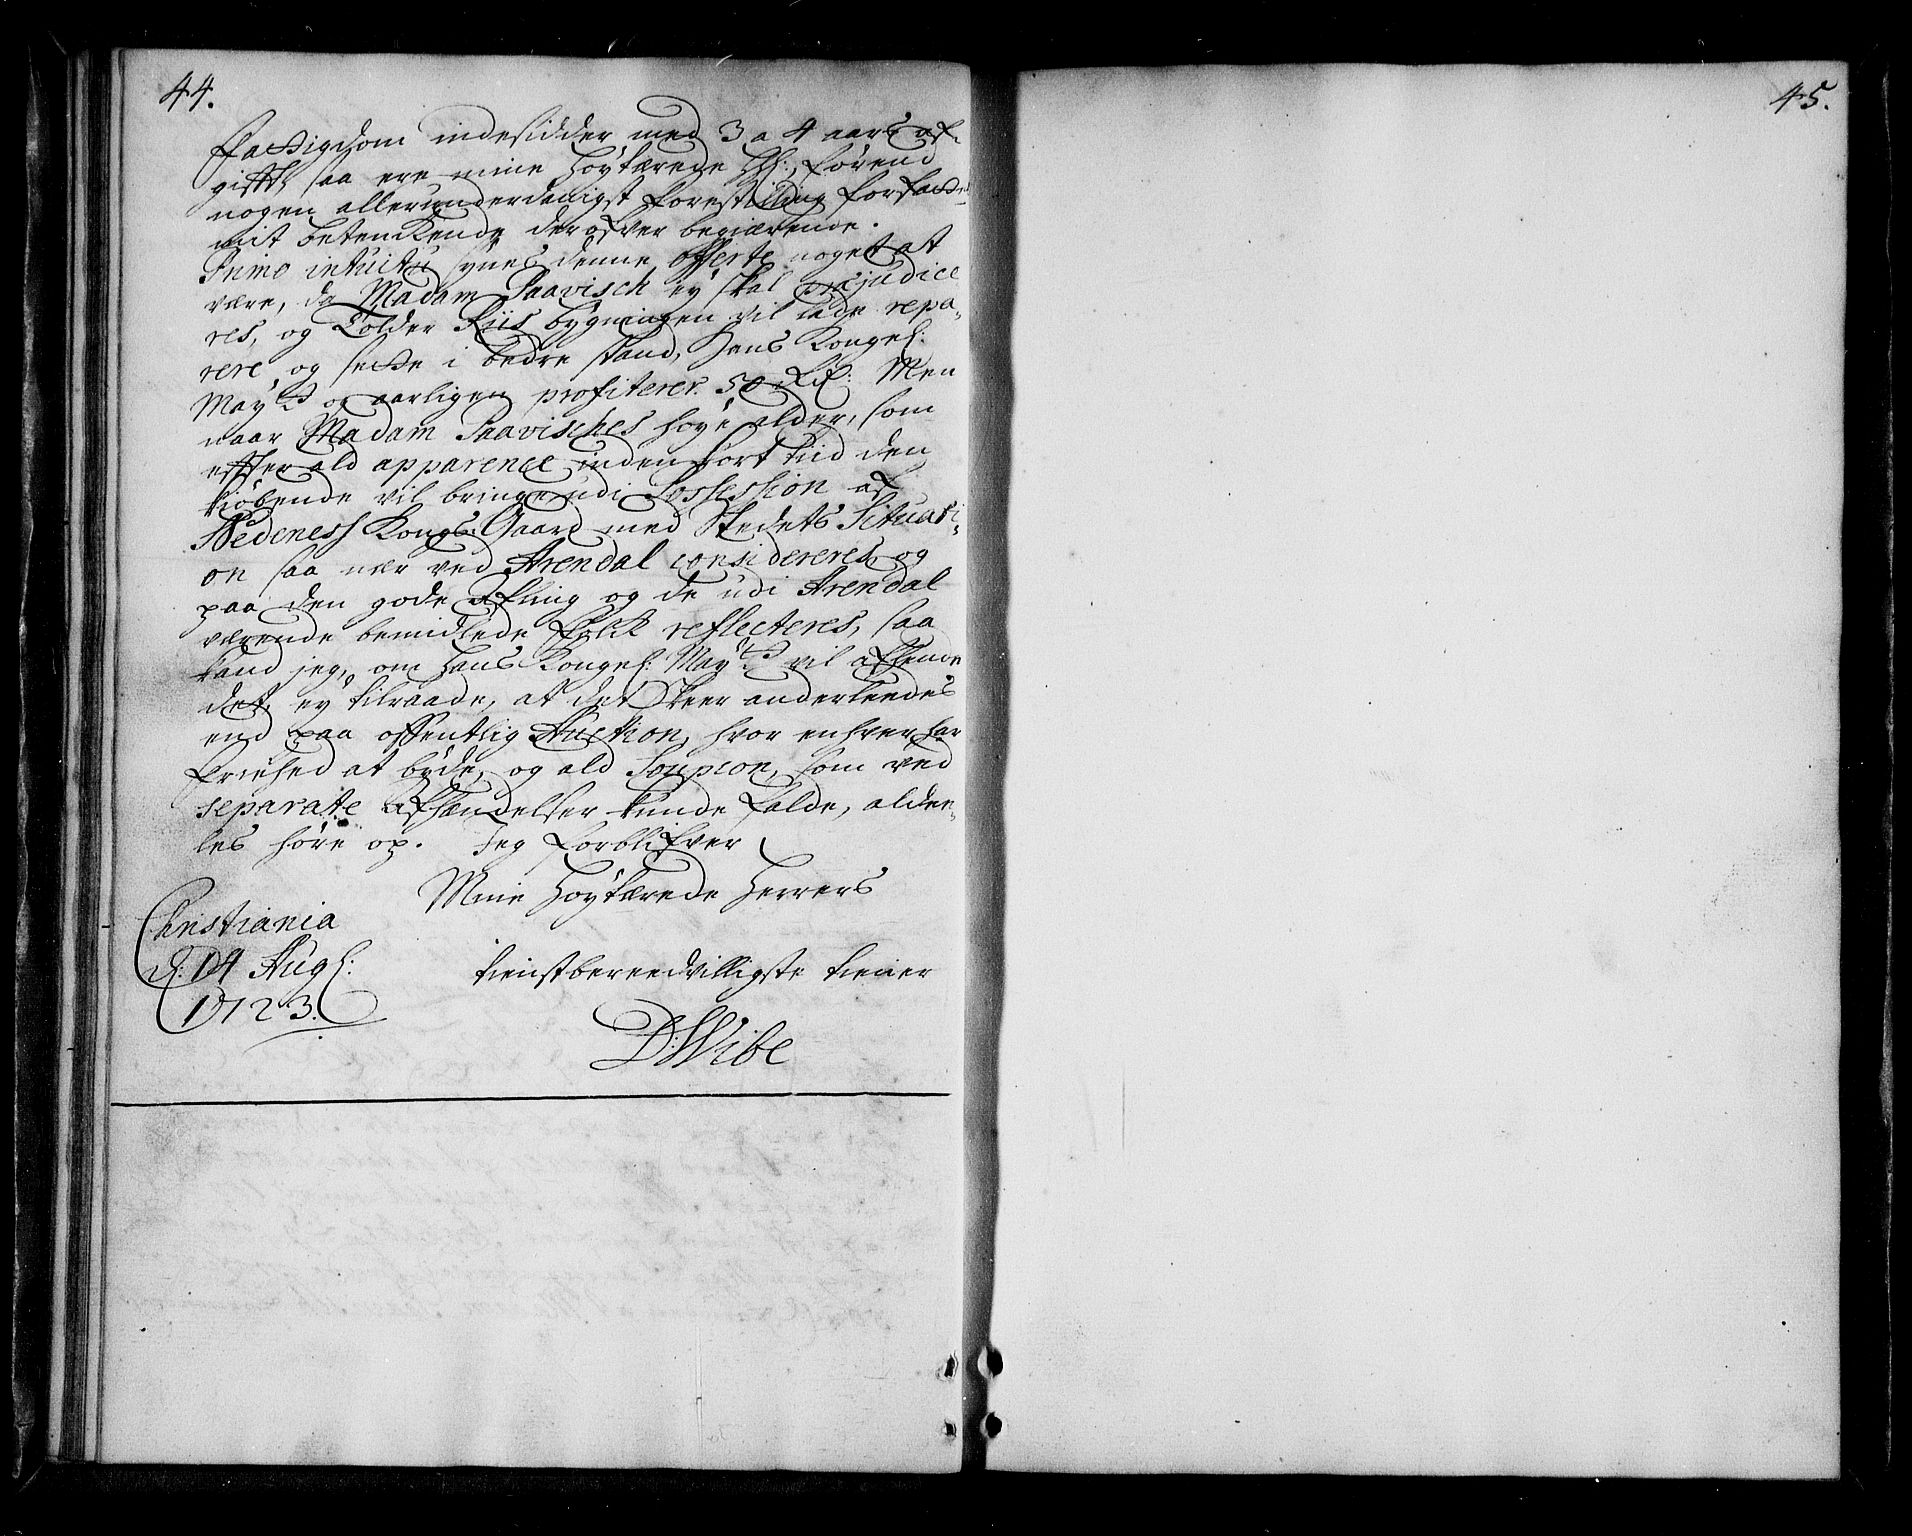 44.
fattigdom indesidder med 3 a 4 aars af-
gifft, saa ere mine Höytærede HH: förend
nogen allerunderdanigst forestilling forfattes
mit betenkende derofver begiærende.
Primo intuitu synes denne offerte noget at
være, da Madam Paavisch ey skal præjudice
res, og Tolder Riis bygningen vil lade repa-
rere og sette i bedre stand, Hans Kongel:
Mayᵗᵗ og aarligen profiterer 50 Rd: Men
naar Madam Paavisches höye alder, som
effter ald apparence inden kort tiid den
kiöbende vil bringe udi Possession af
Nedeness Kongs Gaard med Stedets Situati-
on saa nær ved Arendal considereres, og
paa den gode Afling og de udi Arendal
værende bemidlede Folk reflecteres, saa
kand jeg, om Hans Kongel: Mayᵗᵗ vil afhænde
det, ey tilraade, at det skeer anderleedes
end paa offentlig Auction, hvor enhver har
friehed at byde, og ald Soupcon, som ved
separate Afhændelser kunde falde, aldee-
les höre op. Jeg forblifver
Mine Höytærede Herrers
Christiania
d: 14 Aug:
1723.
tienstbereedvilligste tiener
D: Wibe
45.